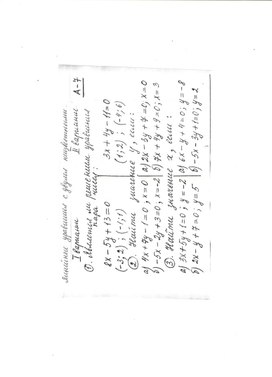 А-7
Линейные уравнения с двумя неизвестными
I вариант
II вариант
① Является ли решением уравнения пара чисел:
8x - 5y + 13 = 0
(-3; 2) ; (-1; 1)
3x + 4y - 11 = 0
(1; 2) ; (-1; 6)
② Найти значение y, если:
а) 4x + 7y - 1 = 0, x = 0
б) -5x - 2y + 3 = 0, x = -2
а) 2x - 5y + 7 = 0, x = 0
б) 7x + 4y + 9 = 0, x = 3
③ Найти значение x, если:
а) 3x + 5y + 1 = 0; y = -2
б) 2x - y + 7 = 0; y = 5
а) 6x - y + 4 = 0; y = -8
б) -5x - 3y + 1 = 0; y = 2